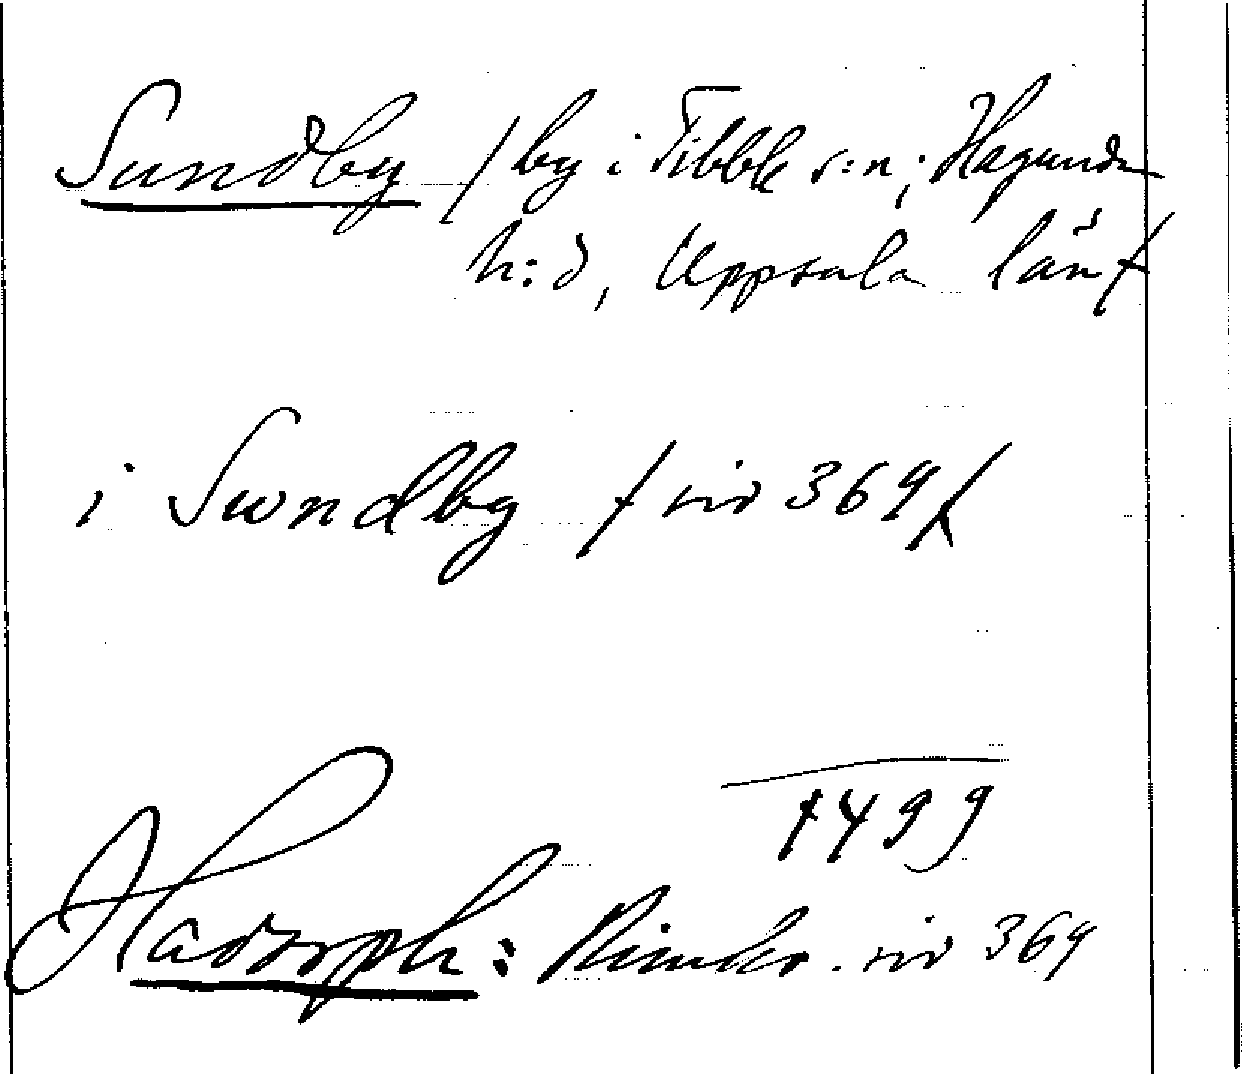 Sundby /by i Tibble s:n, Hagunda
h:d, Uppsala län/
i Swndby / sid 369/
1499
Hadorph: Rimkr. sid 369